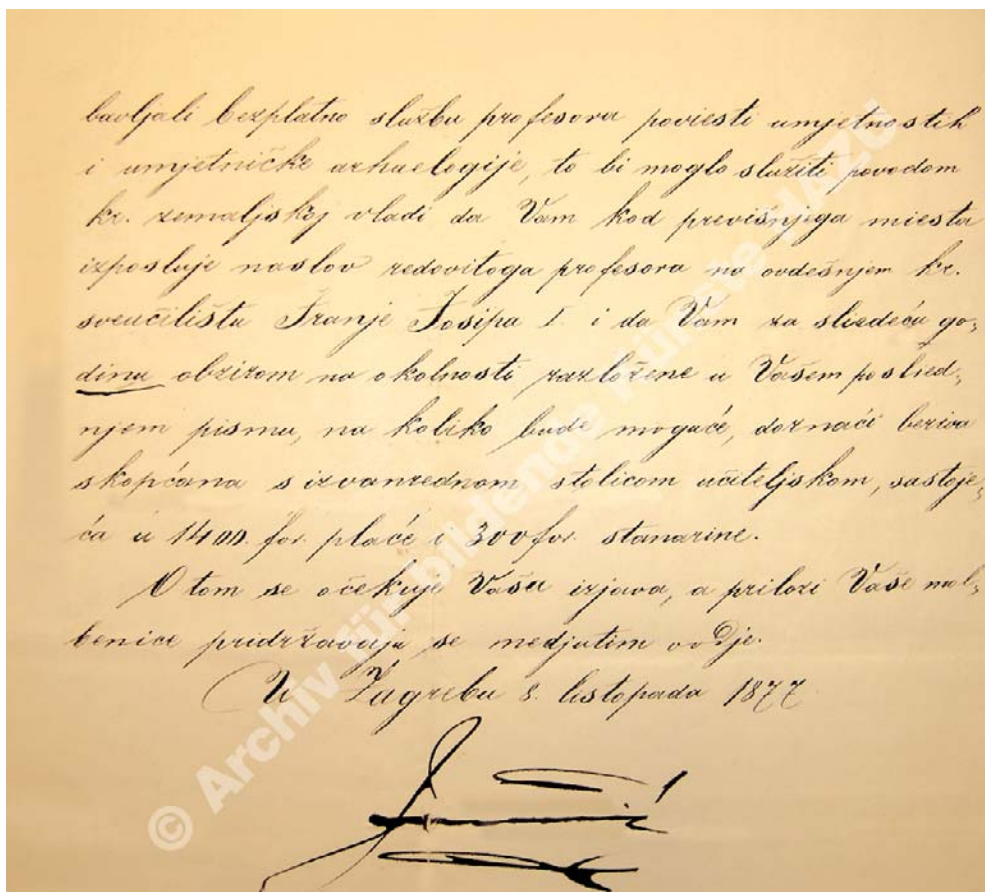 bavljali bezplatno službu profesora poviesti umjetnostih
i umjetničke arhaelogije, to bi moglo služiti povodom
kr. zemaljskoj vladi da Vam kod previšnjega miesta
izposluje naslov redovitoga profesora na ovdešnjem kr.
sveučilištu Franje Josipa I. i da Vam za sliedeću go-
dinu obzirom na okolnosti razložene u Vašem posljed-
njem pismu, na koliko bude moguće, doznači beriva
skopčana s izvanrednom stolicom učiteljskom, sastoje-
ća u 1400. for. plaće i 300 for. stanarine.
O tom se očekuje Vaša izjava, a prilozi Vaše mol-
benice pridržavaju se medjutim ovdje.
U Zagrebu 8. listopada 1877
© Archiv für bildende Künste HAZU